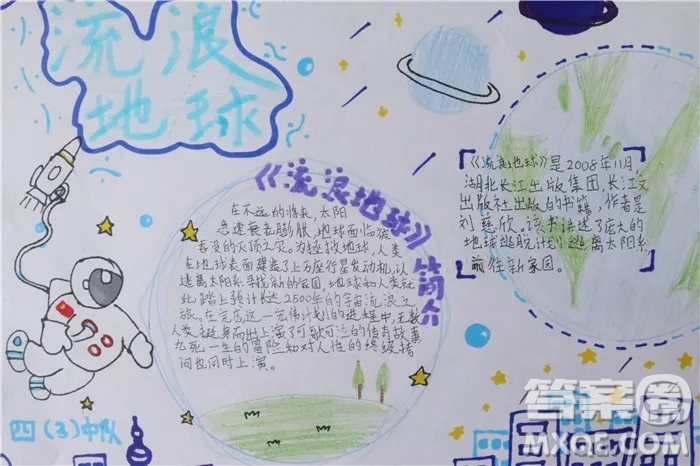 流浪
地球
《流浪地球》简介
在不远的将来,太阳
急速衰老膨胀,地球面临被
吞没的灭顶之灾。为拯救地球,人类
在地球表面建造了上万座行星发动机,以
逃离太阳系寻找新的家园,地球和人类就
此踏上预计长达2500年的宇宙流浪之
旅。在完成这一宏伟计划的进程中,无数
人类挺身而出上演了可歌可泣的传奇故事
九死一生的冒险和对人性的终极拷
问也同时上演。
《流浪地球》是2008年11月,
湖北长江出版集团,长江文
出版社出版的书籍,作者是
刘慈欣。该书讲述了庞大的
地球逃脱计划逃离太阳系
前往新家园。
四(3)中队
答案圈
MXQE.COM